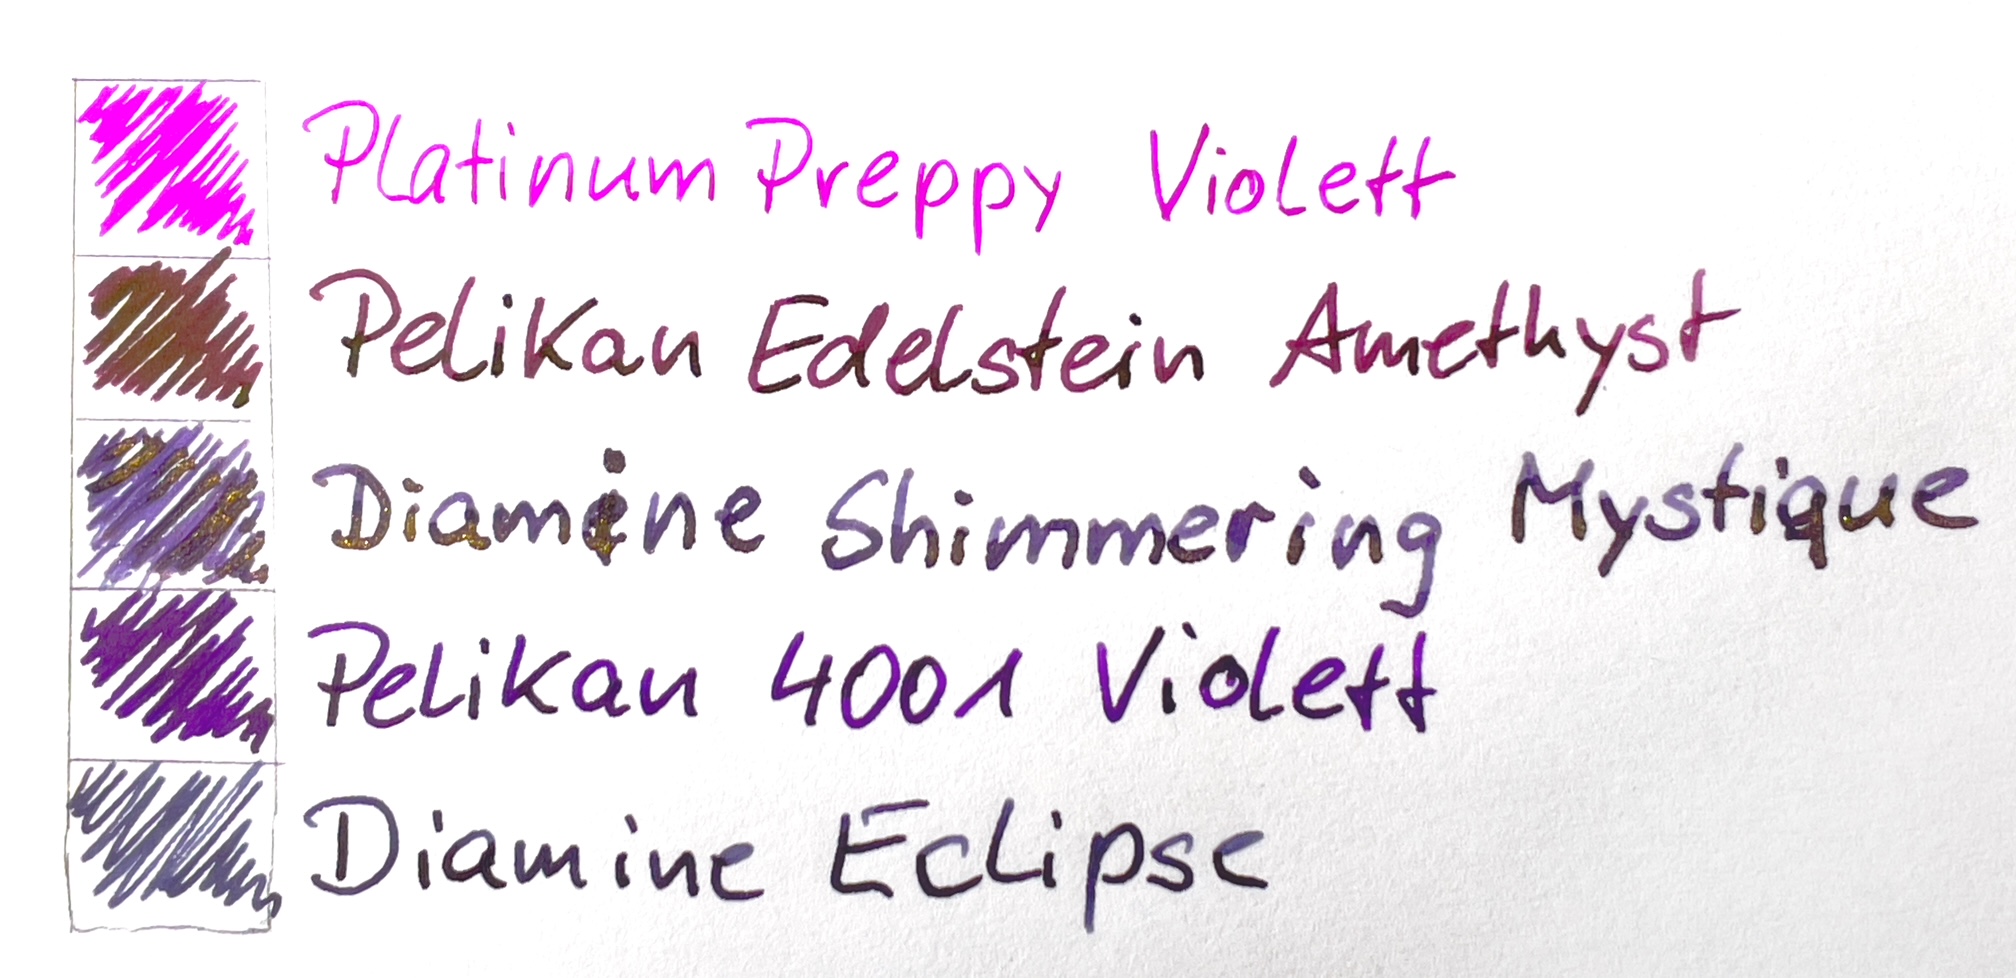 Platinum Preppy Violett
Pelikan Edelstein Amethyst
Diamine Shimmering Mystique
Pelikan 4001 Violett
Diamine Eclipse